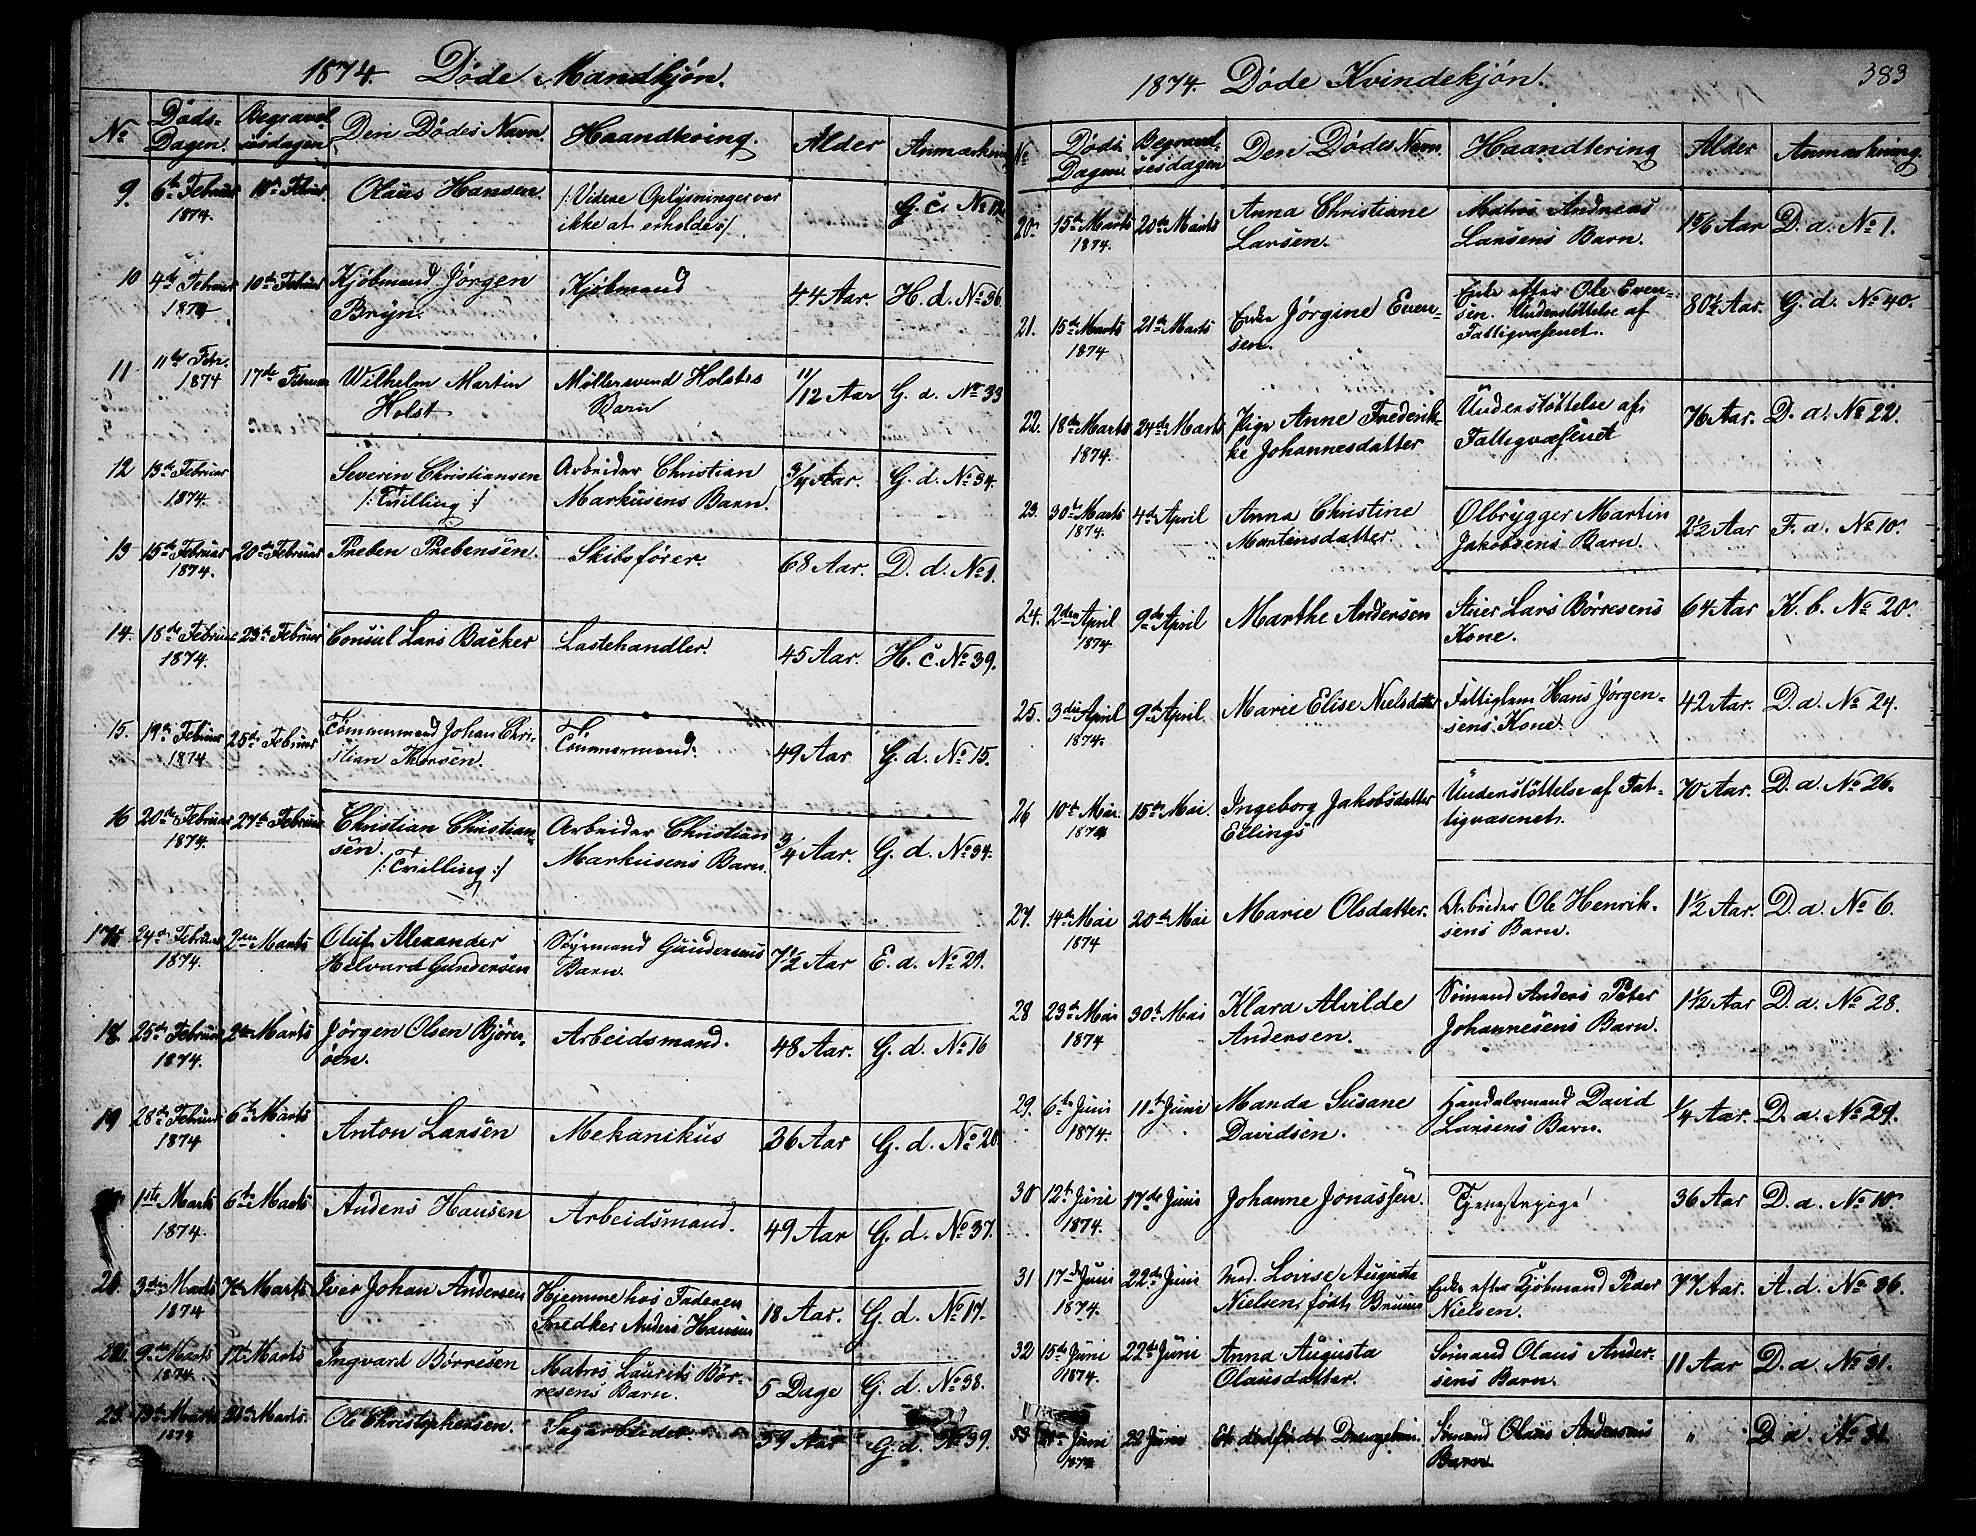 1874. Døde Mandkjøn.
No Døds-Dagen. Begravelsesdagen Den Dødes Navn. Haandtering. Alder Anmærkning
9. 6te Februar 1874. 10de Februar. Olaus Hansen. /: Videre Oplysninger var ikke at erholdes :/ G. c. No
10 4de Februar 1874 10de Februar Kjøbmand Jørgen Bryn. Kjøbmand 44 Aar. H. d. No 36.
11 11te Febr. 1874 17de Februar Wilhelm Martin Holst Møllersvend Holsts Barn 11/12 Aar G. d. No 33
12 13de Februar 1874. Severin Christiansen /: Tvilling :/ Arbeider Christian Markusens Barn. 3/4 Aar. G. d. No 34.
13 15de Februar 1874. 20de Februar Preben Prebensen. Skibsfører. 68 Aar. D. d. No 1.
14. 18de Februar 1874. 23de Februar Consul Lars Backer Lastehandler. 45 Aar. H. c. No 39.
15. 19de Februar 1874 25de Februar Tømmermand Johan Christian Thorsen. Tømmermand. 49 Aar G. d. No 15.
16 20de Februar 1874. 27de Februar Christian Christiansen. /: Tvilling :/ Arbeider Christian Markusens Barn. 3/4 Aar. G. d. No 34.
17 24de Februar 1874. 2den Marts Oluf Alexander Helvard Gundersen Styrmand Gundersens Barn. 7 1/2 Aar E. d. No 29.
18. 25de Februar 1874. 2den Marts Jørgen Olsen Bjørenøen. Arbeidsmand. 48 Aar. G. d. No 16
19 28de Februar 1874 6te Marts Anton Larsen Mekanikus 36 Aar G. d. No 20.
1ste Marts 1874. 6te Marts Anders Hansen Arbeidsmand. 49 Aar G. d. No 37.
21. 3die Marts 1874 7de Marts Iver Johan Andersen Hjemme hos Faderen Snedker Anders Hansen 18 Aar. G. d. No 17.
22. 9de Marts 1874. 12te Marts Ingvard Børresen Matros Laurits Børresens Barn. 5 Dage G. d. No 38.
23. 13de Marts 1874 20de Marts. Ole Christophersen. Sagarbeider. 59 Aar G. d. No 39.
1874. Døde Kvindekjøn. 383
No Døds Dagen. Begravelsesdagen Den Dødes Navn. Haandtering Alder Anmærkning.
20. 15de Marts 1874. 20de Marts Anna Christiane Larsen. Matros Andreas Larsens Barn. 1 5/6 Aar D. a. No 1.
21. 15de Marts 1874 21de Marts Enke Jørgine Evensen. Enke efter Ole Evensen. Understøttelse af Fattigvæsenet. 80 1/2 Aar. G. d. No 40.
22. 18de Marts 1874. 24de Marts Pige Anne Frederikke Johannesdatter Understøttelse af Fattigvæsenet 76 Aar. D. a. No 22.
23. 30te Marts 1874. 4de April Anna Christine Martinsdatter. Ølbrygger Martin Jakobsens Barn. 2 1/2 Aar F. a. No 10.
24. 2den April 1874 9de April Marthe Andersen Stuer Lars Børresens Kone. 64 Aar K. b. No 20.
25. 3die April 1874. 9de April. Marie Elise Nielsdatter Fattiglem Hans Jørgensens Kone. 42 Aar. D. a. No 24.
26 10de Mai. 1874 15de Mai. Ingeborg Jakobsdatter Ellings Understøttelse af Fattigvæsenet. 70 Aar. D. a. No 26.
27. 14de Mai 1874 20de Mai Marie Olsdatter. Arbeider Ole Henriksens Barn. 1 1/2 Aar. D. a. No 6.
28 23de Mai 1874 30te Mai Klara Alvilde Andersen. Sømand Anders Peter Johannesens Barn. 1 1/2 Aar D. a. No 28.
29. 6te Juni 1874. 11te Juni Manda Susane Davidsen. Handelsmand David Larsens Barn. 1/4 Aar. D. a. No 29.
30 12te Juni 1874. 17de Juni Johanne Jonassen. Tjenestepige 36 Aar D. a. No 10.
31 17de Juni 1874. 22de Juni Mad. Lovise Augusta Nielsen, født Bruun Enke efter Kjøbmand Peder Nielsen. 77 Aar. A. d. No 36.
32 15de Juni 1874. 22de Juni Anna Augusta Olausdatter. Sømand Olaus Andersens Barn. 11 Aar D. a. No 31.
33 Juni 1874 22 Juni Et dødfødt Drengebarn. Sømand Olaus Andersens Barn. " D. a. No 31.